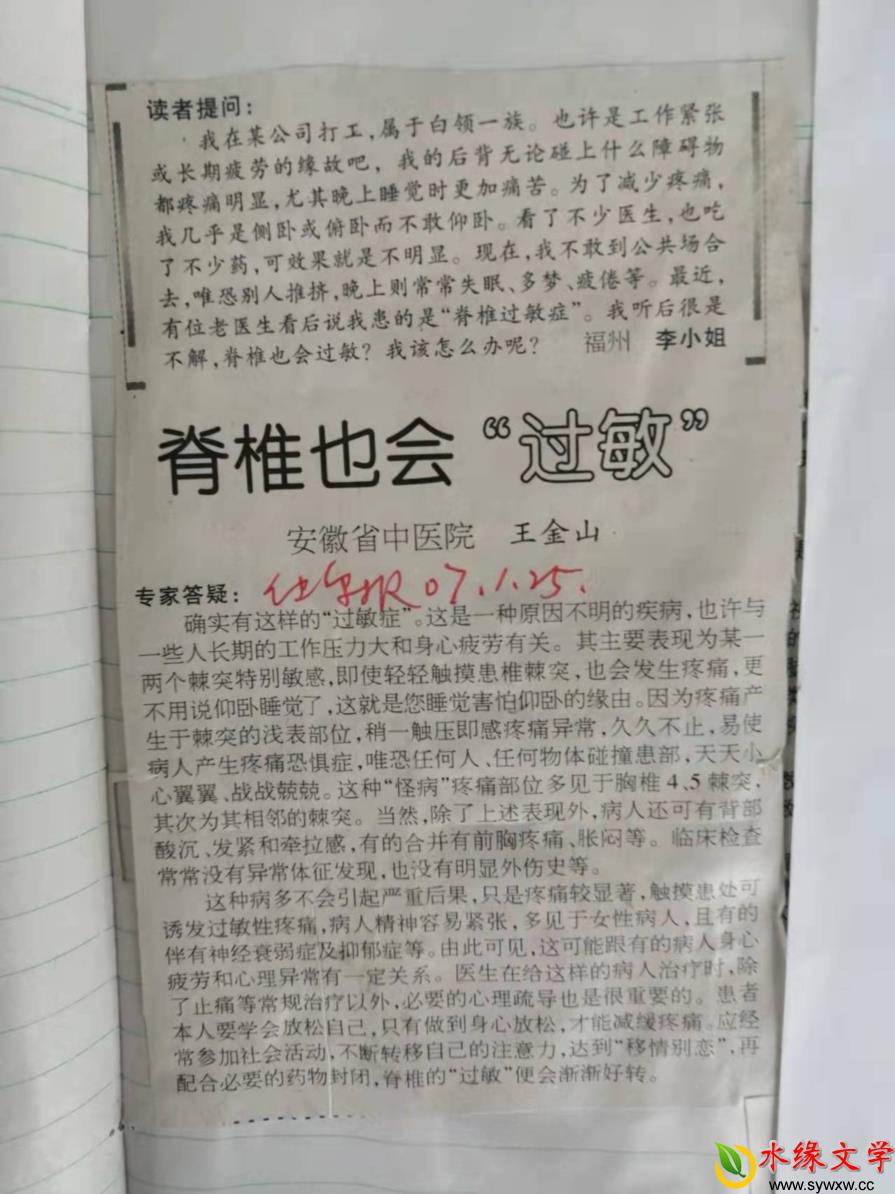 读者提问：
我在某公司打工，属于白领一族。也许是工作紧张
或长期疲劳的缘故吧，我的后背无论碰上什么障碍物
都疼痛明显，尤其晚上睡觉时更加痛苦。为了减少疼痛，
我几乎是侧卧或俯卧而不敢仰卧。看了不少医生，也吃
了不少药，可效果就是不明显。现在，我不敢到公共场合
去，唯恐别人推挤，晚上则常常失眠、多梦、疲倦等。最近，
有位老医生看后说我患的是“脊椎过敏症”。我听后很是
不解，脊椎也会过敏？我该怎么办呢？ 福州 李小姐
脊椎也会“过敏”
安徽省中医院 王金山
专家答疑： 07.1.25.
确实有这样的“过敏症”。这是一种原因不明的疾病，也许与
一些人长期的工作压力大和身心疲劳有关。其主要表现为某一
两个棘突特别敏感，即使轻轻触摸患椎棘突，也会发生疼痛，更
不用说仰卧睡觉了，这就是您睡觉害怕仰卧的缘由。因为疼痛产
生于棘突的浅表部位，稍一触压即感疼痛异常，久久不止，易使
病人产生疼痛恐惧症，唯恐任何人、任何物体碰撞患部，天天小
心翼翼、战战兢兢。这种“怪病”疼痛部位多见于胸椎4、5棘突，
其次为其相邻的棘突。当然，除了上述表现外，病人还可有背部
酸沉、发紧和牵拉感，有的合并有前胸疼痛、胀闷等。临床检查
常常没有异常体征发现，也没有明显外伤史等。
这种病多不会引起严重后果，只是疼痛较显著，触摸患处可
诱发过敏性疼痛，病人精神容易紧张，多见于女性病人，且有的
伴有神经衰弱症及抑郁症等。由此可见，这可能跟有的病人身心
疲劳和心理异常有一定关系。医生在给这样的病人治疗时，除
了止痛等常规治疗以外，必要的心理疏导也是很重要的。患者
本人要学会放松自己，只有做到身心放松，才能减缓疼痛。应经
常参加社会活动，不断转移自己的注意力，达到“移情别恋”，再
配合必要的药物封闭，脊椎的“过敏”便会渐渐好转。
水缘文学
www.sywxw.cc